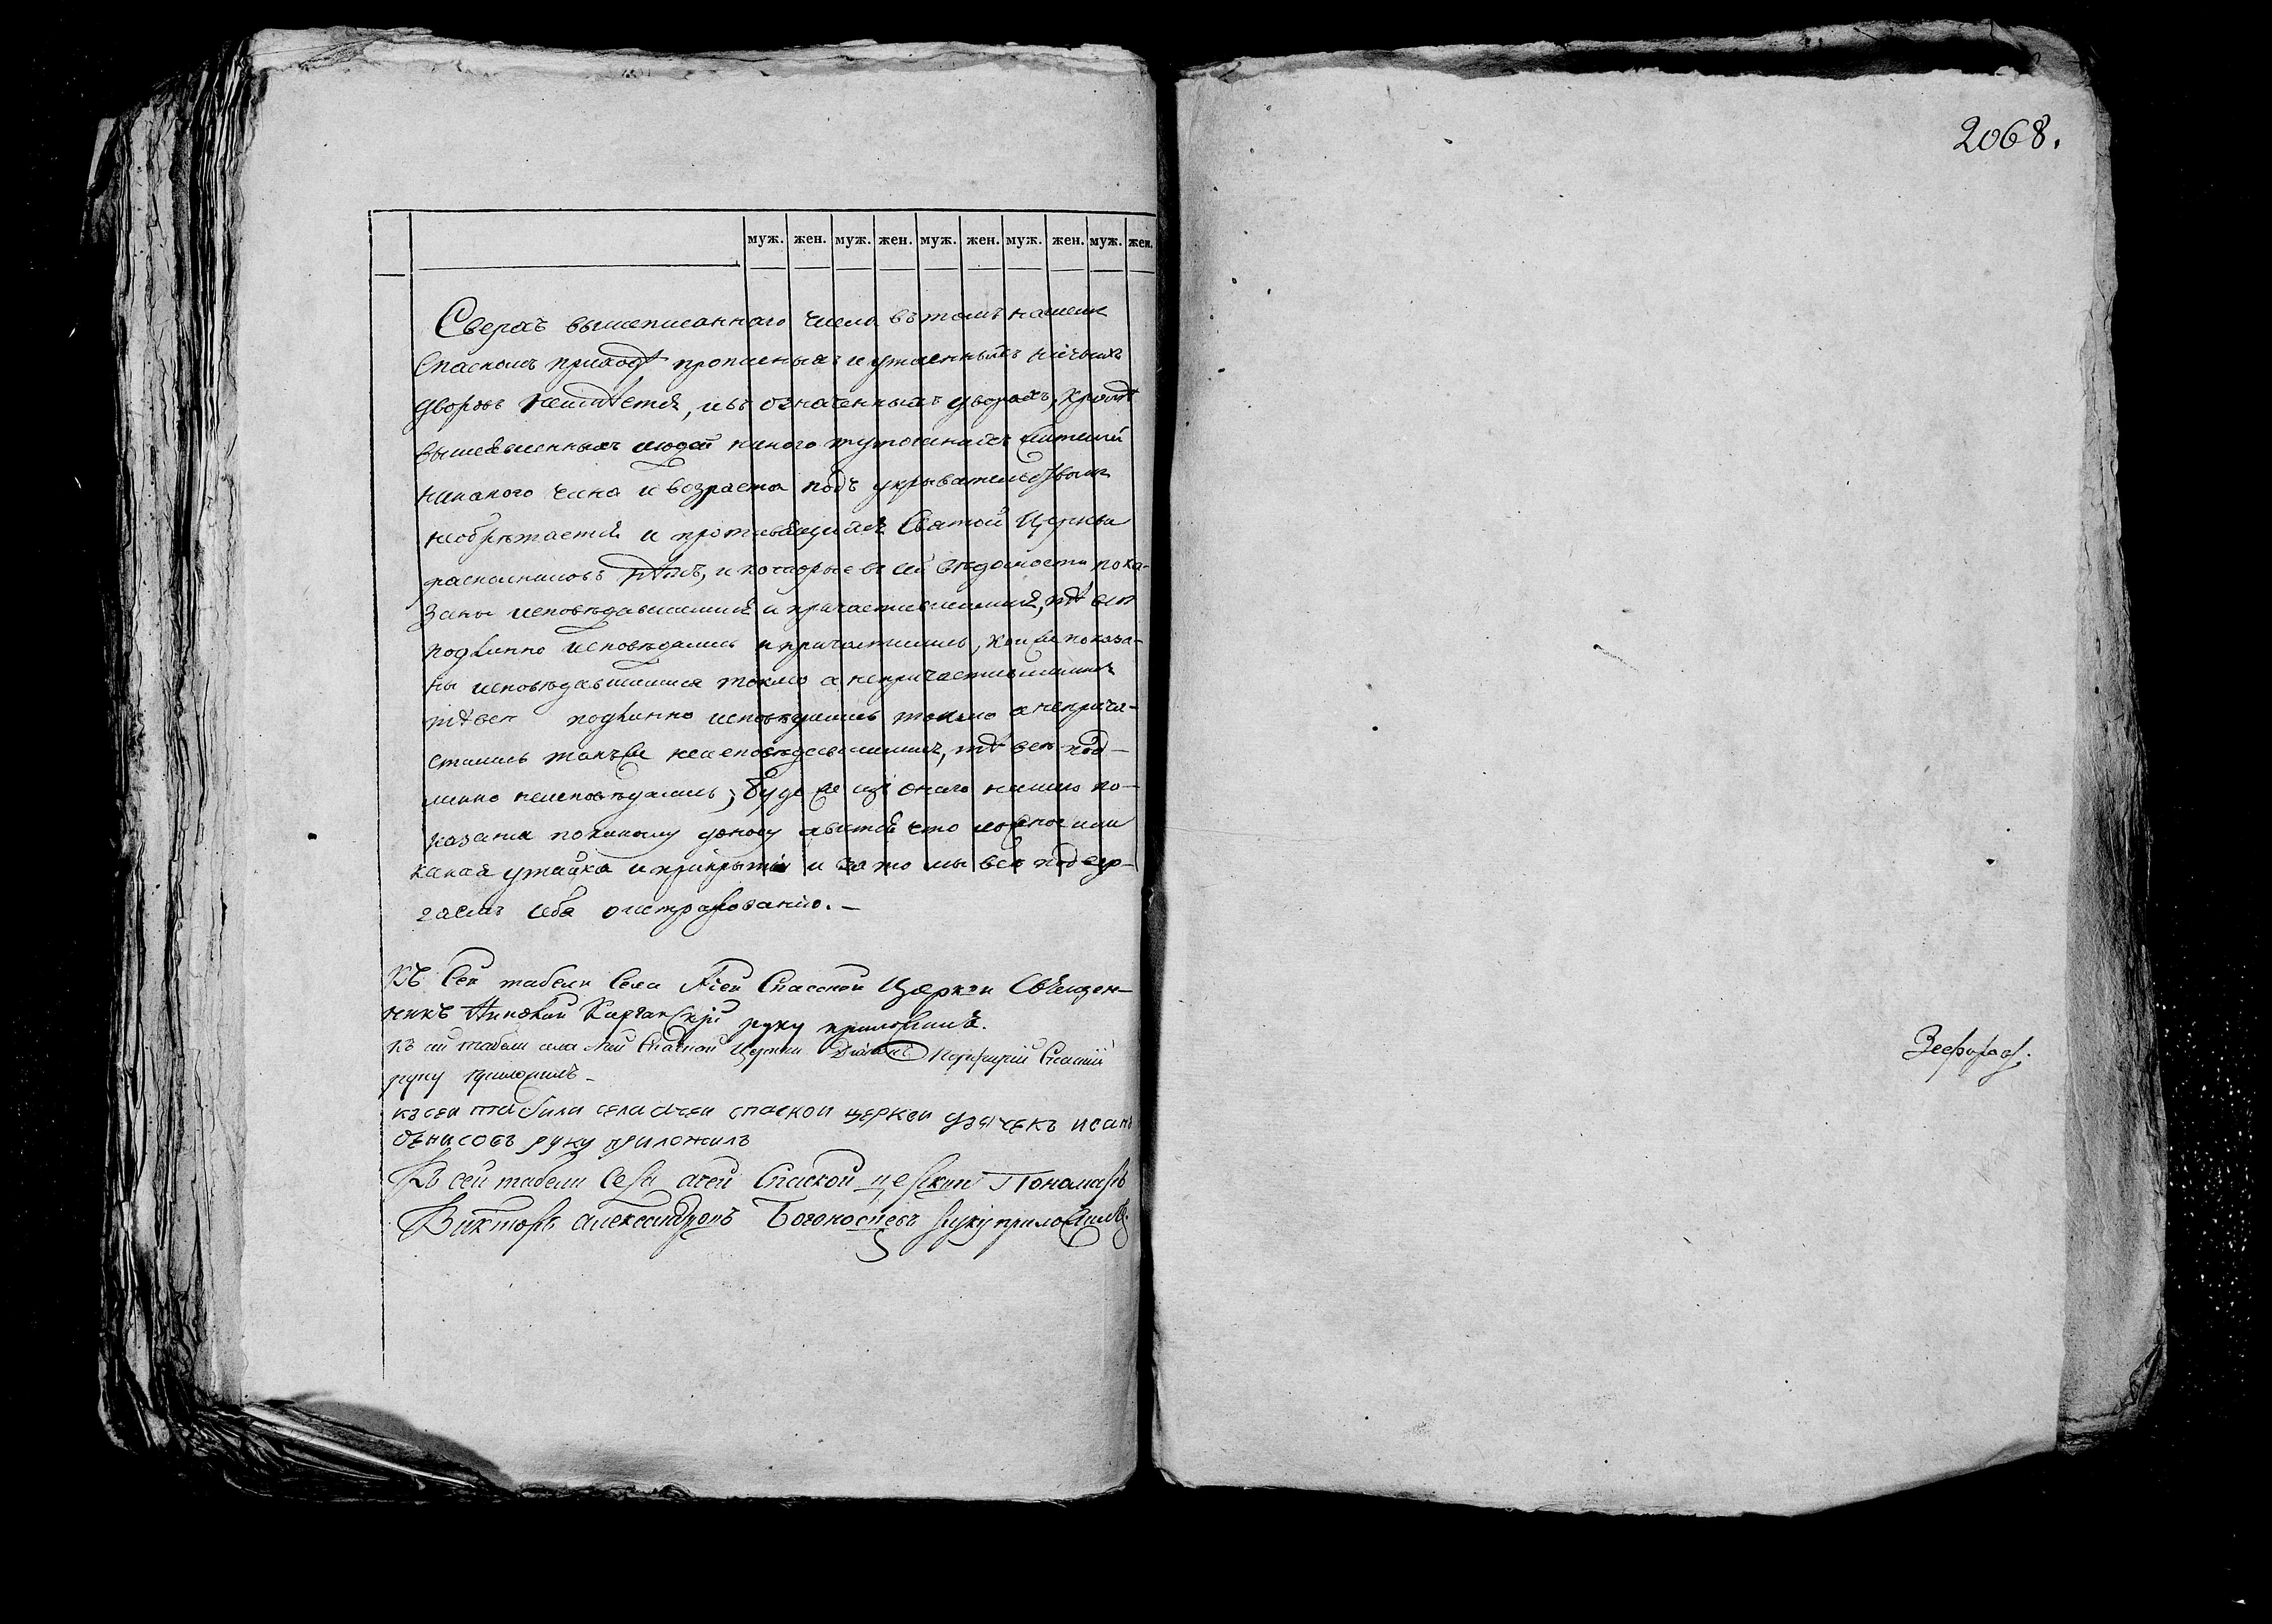 2068.
муж. жен. муж. жен. муж. жен. муж. жен. муж. жен.
Сверхъ вышеписаннаго числа въ томъ нашемъ
Спаскомъ приходѣ прописныхъ и утаенныхъ ничьихъ
дворовъ неимѣется, и въ означенныхъ дворахъ, кромѣ
вышеявленныхъ людей никого тутошнихъ жителей
никакого чина и возраста подъ укрывательствомъ
необрѣтается и противящихся Святой Церкви
раскольниковъ нѣтъ, и которые въ сей вѣдомости пока-
заны исповѣдавшимися и причастившимися, тѣ всѣ
подлинно исповѣдались и причастились, кои же показа-
ны исповѣдавшимися токмо а непричастившимися
тѣ всѣ подлинно исповѣдались токмо а неприча-
стились такъ же неисповѣдавшимися, тѣ всѣ под-
линно неисповѣдались; буде же изъ онаго нашего по-
казания по какому доносу явится что ложное или
какая утайка и прикрытія и за то мы всѣ подвер-
гаемъ себя оштрафованію. —
Къ Сей табели Села Ачей Спасской Церкви Священ-
никъ руку приложилъ.
къ сей табели села Ачей Спаской Церкви Діаконъ Порфирій Спаскій
руку приложилъ —
къ сеи табили села ачеи спаскои церкви дячекъ
денисовъ руку приложилъ
Къ сей табели Села ачей Спаской церкви Пономарь
Викторъ александровъ Богоносцевъ руку приложилъ.